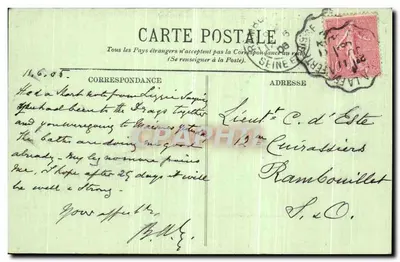 CARTE POSTALE
Tous les Pays étrangers n'acceptent pas la Correspondance au recto.
(Se renseigner à la Poste).
CORRESPONDANCE
ADRESSE
Had a short note from Lizzie saying
you had been to the Drags together
and you were going to
The baths are doing me good
already. My leg no more pains
me. I hope after 25 days it will
be well & strong.
Your affect
Lieut^t C. d'Este
12^me Cuirassiers
Rambouillet
S. & O.
SEINE